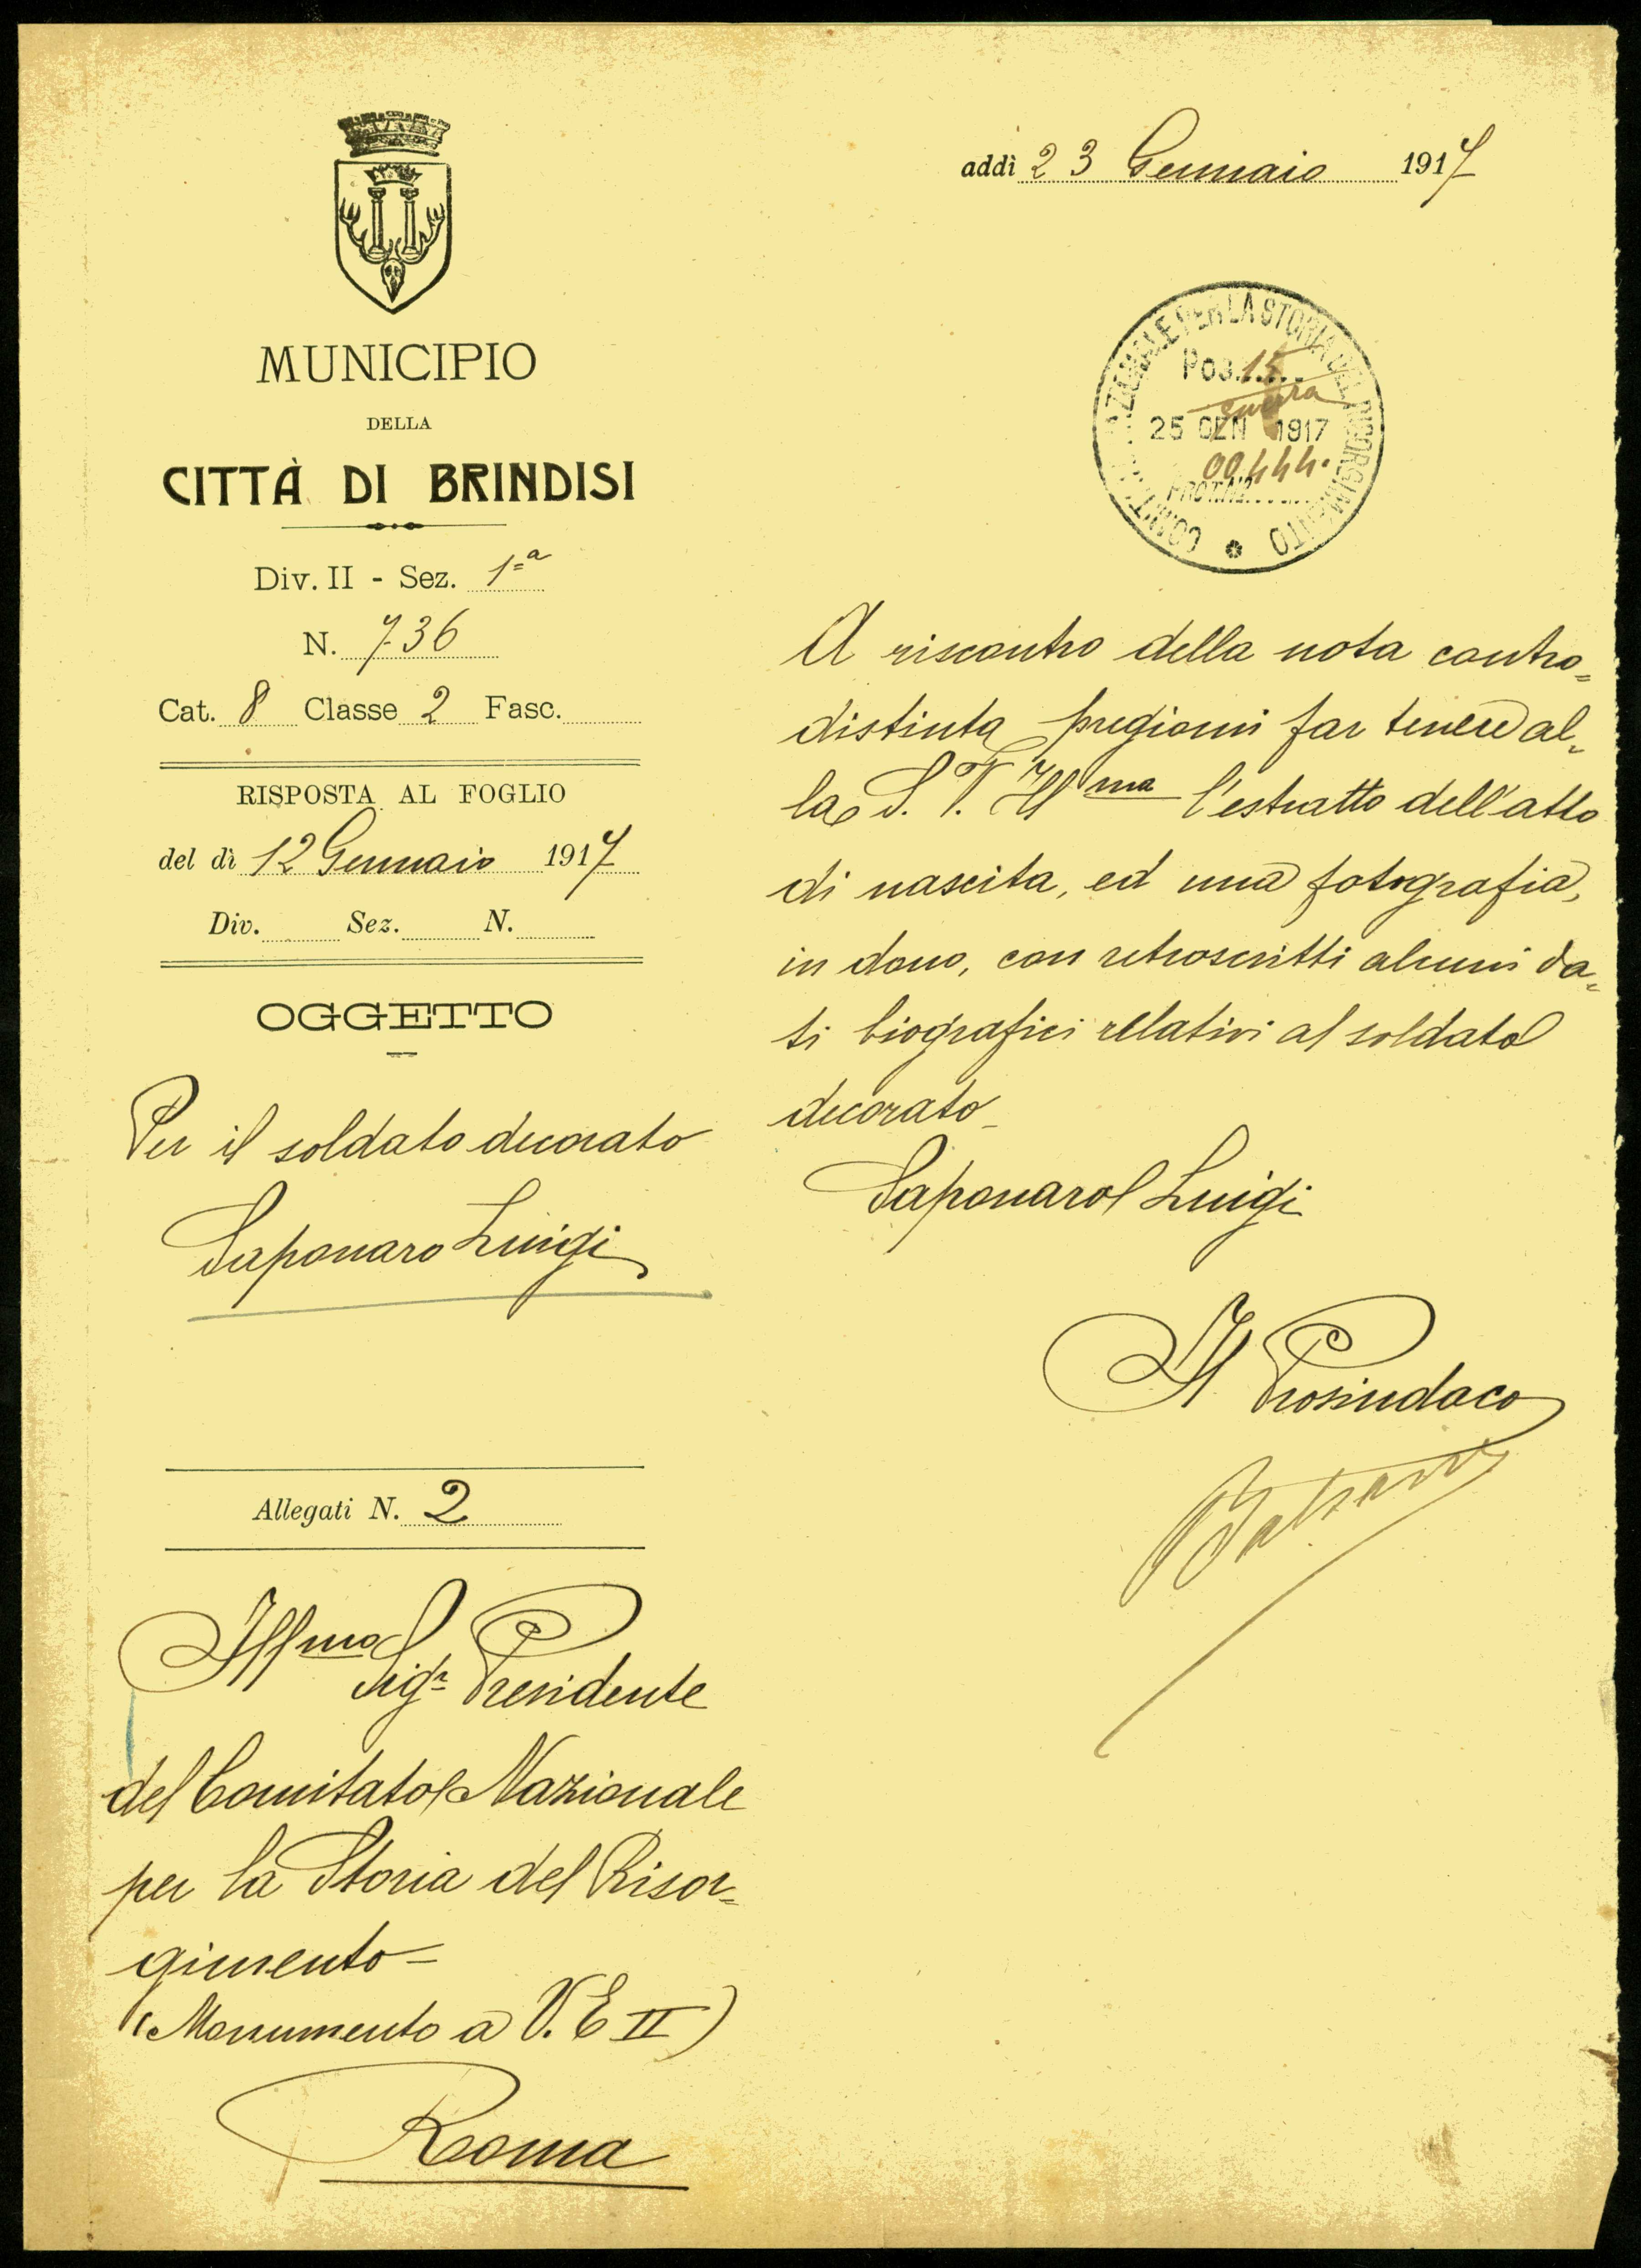 MUNICIPIO
DELLA
CITTÀ DI BRINDISI
Div. II - Sez. 1ª
N. 736
Cat. 8 Classe 2 Fasc.
RISPOSTA AL FOGLIO
del dì 12 Gennaio 1917
Div. Sez. N.
OGGETTO
Per il soldato decorato
Saponaro Luigi
Allegati N. 2
Ill.mo Sigr Presidente
del Comitato Nazionale
per la Storia del Risor=
gimento=
(Monumento a V. E II)
Roma
addì 23 Gennaio 1917
COMITATO NAZIONALE PER LA STORIA DEL RISORGIMENTO
Pos. 15
guerra
25 GEN 1917
00444.
PROT. N.
A riscontro della nota contro=
distinta pregiomi far tenere al=
la S. V. Ill'ma l'estratto dell'atto
di nascita, ed una fotografia,
in dono, con retroscritti alcuni da=
ti biografici relativi al soldato
decorato
Saponaro Luigi
Il Prosindaco